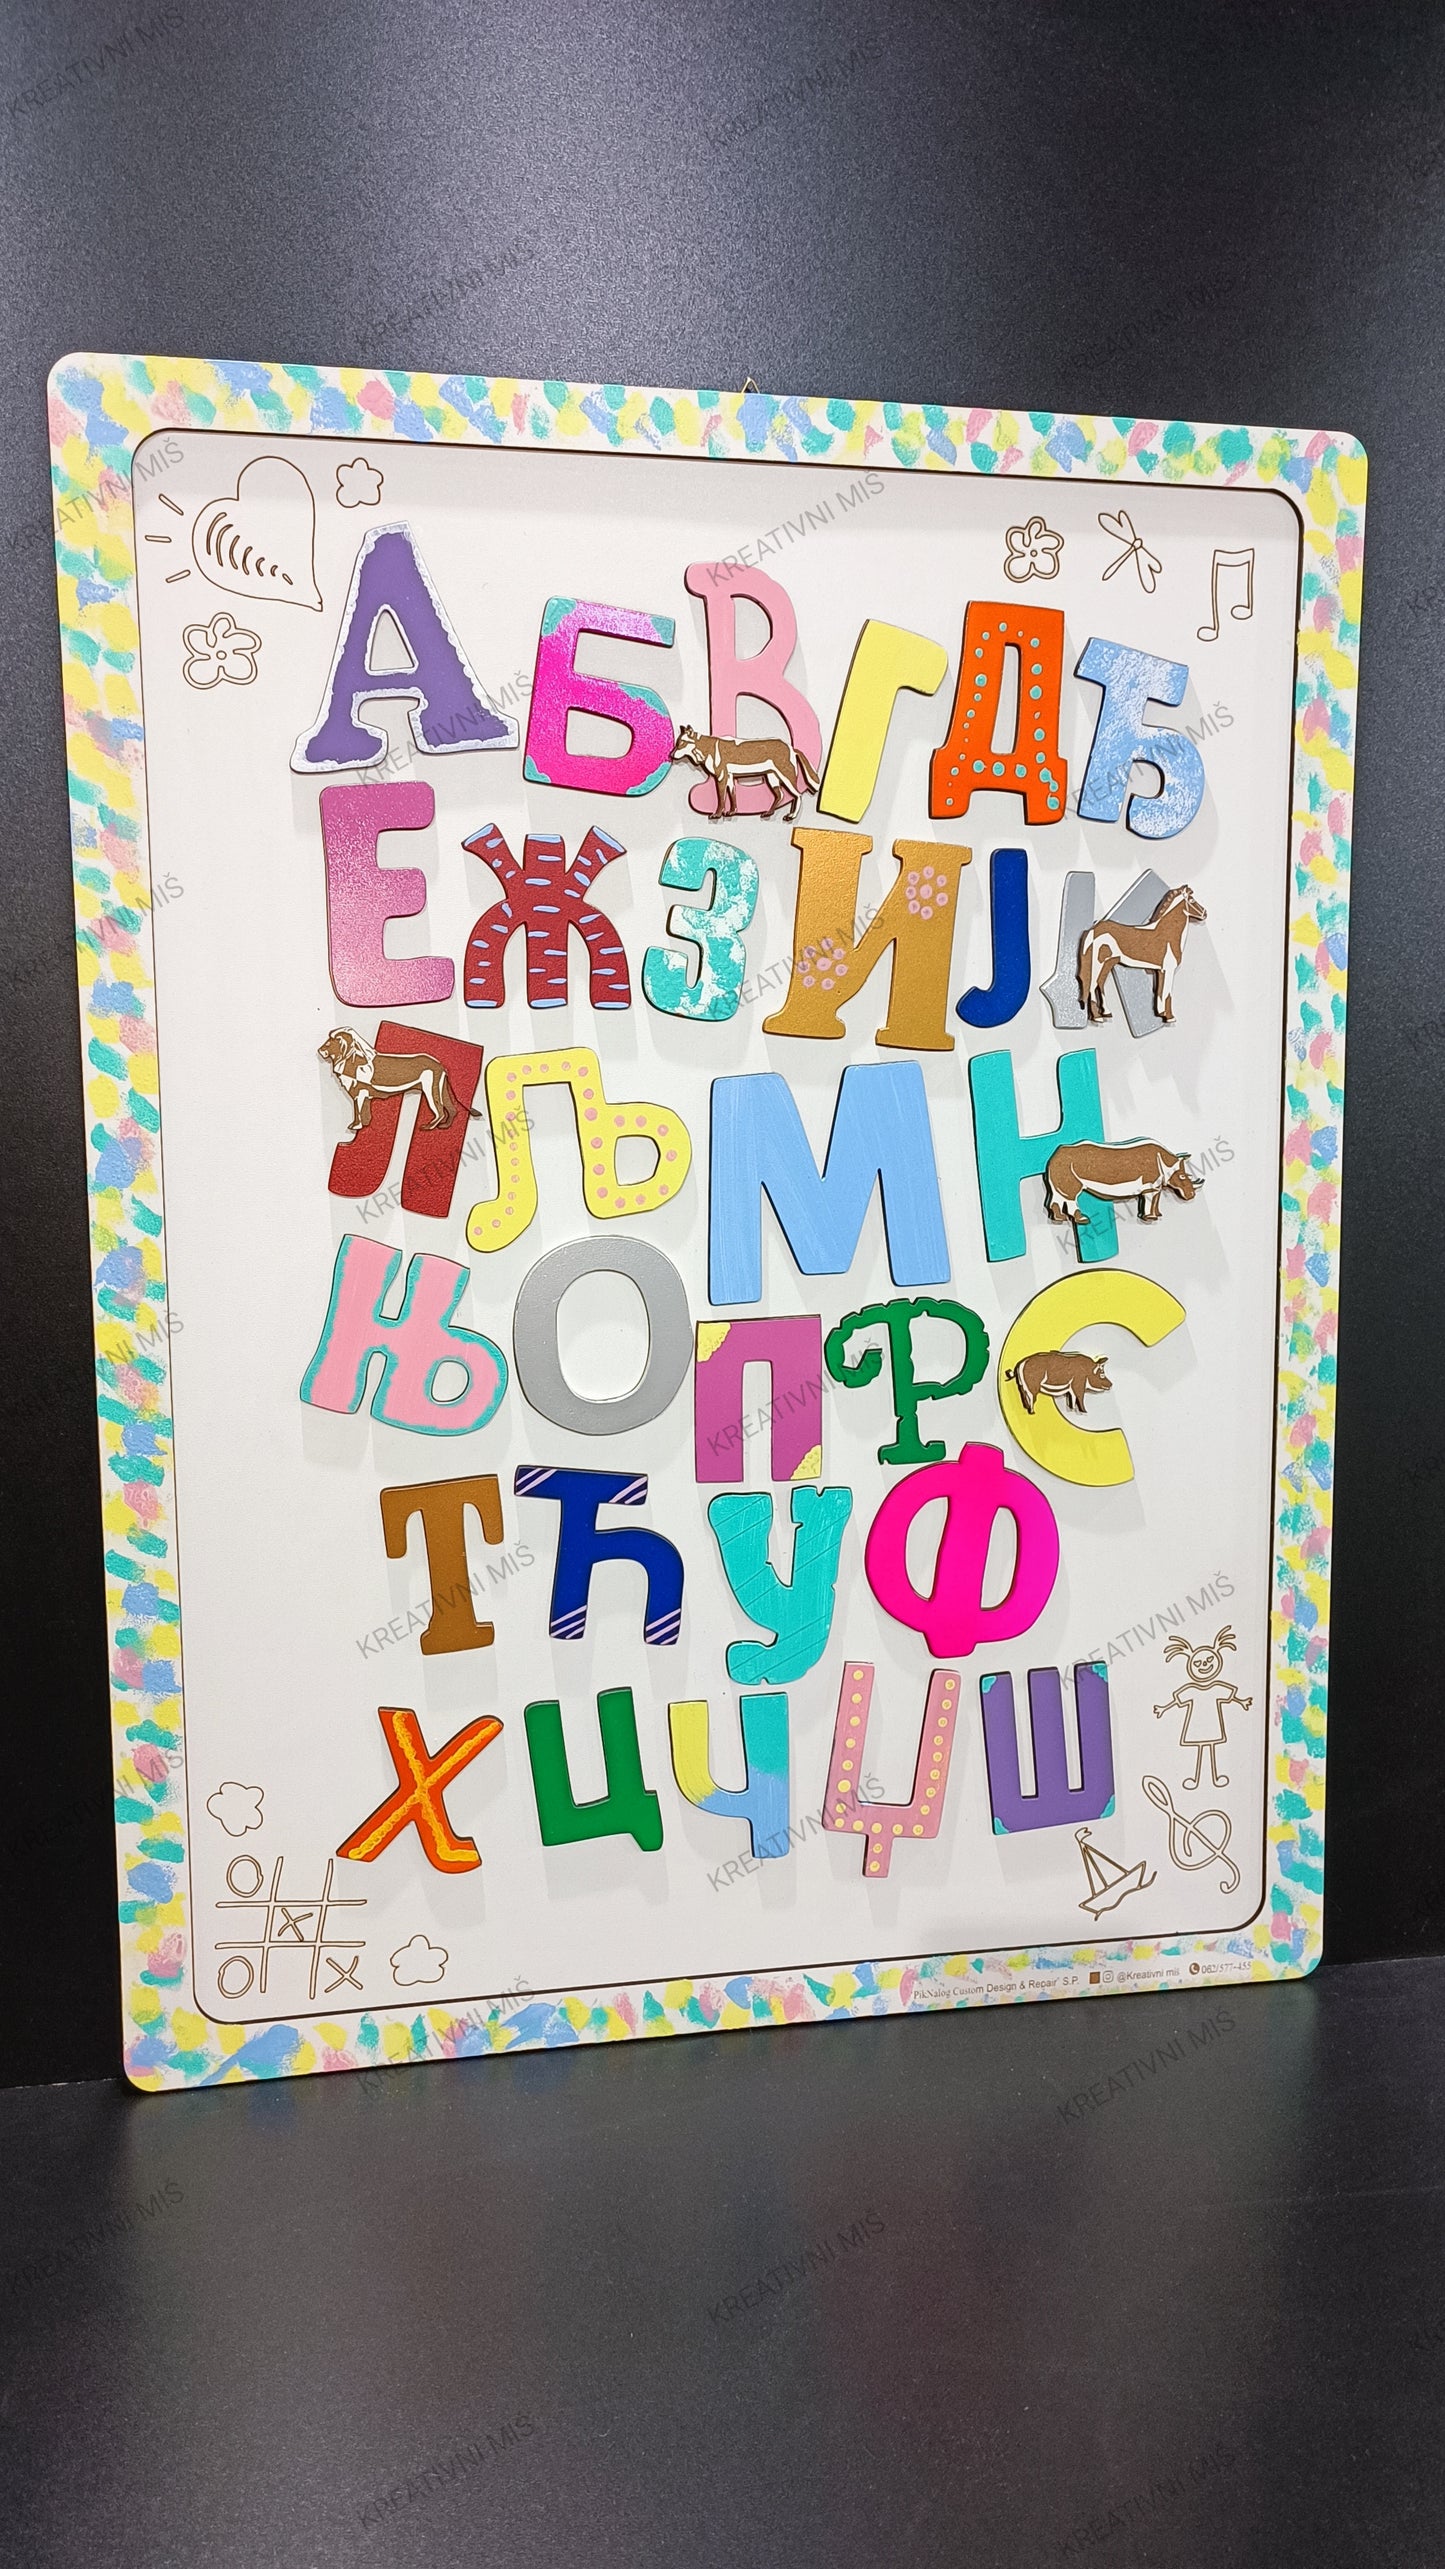 А Б В Г Д Ђ
Е Ж З И Ј К
Л Љ М Н
Њ О П Р С
Т Ћ У Ф
Х Ц Ч Џ Ш
O
X
O X
PikNalog Custom Design & Repair' S.P. @Kreativni miš 062/577-455
KREATIVNI MIŠ